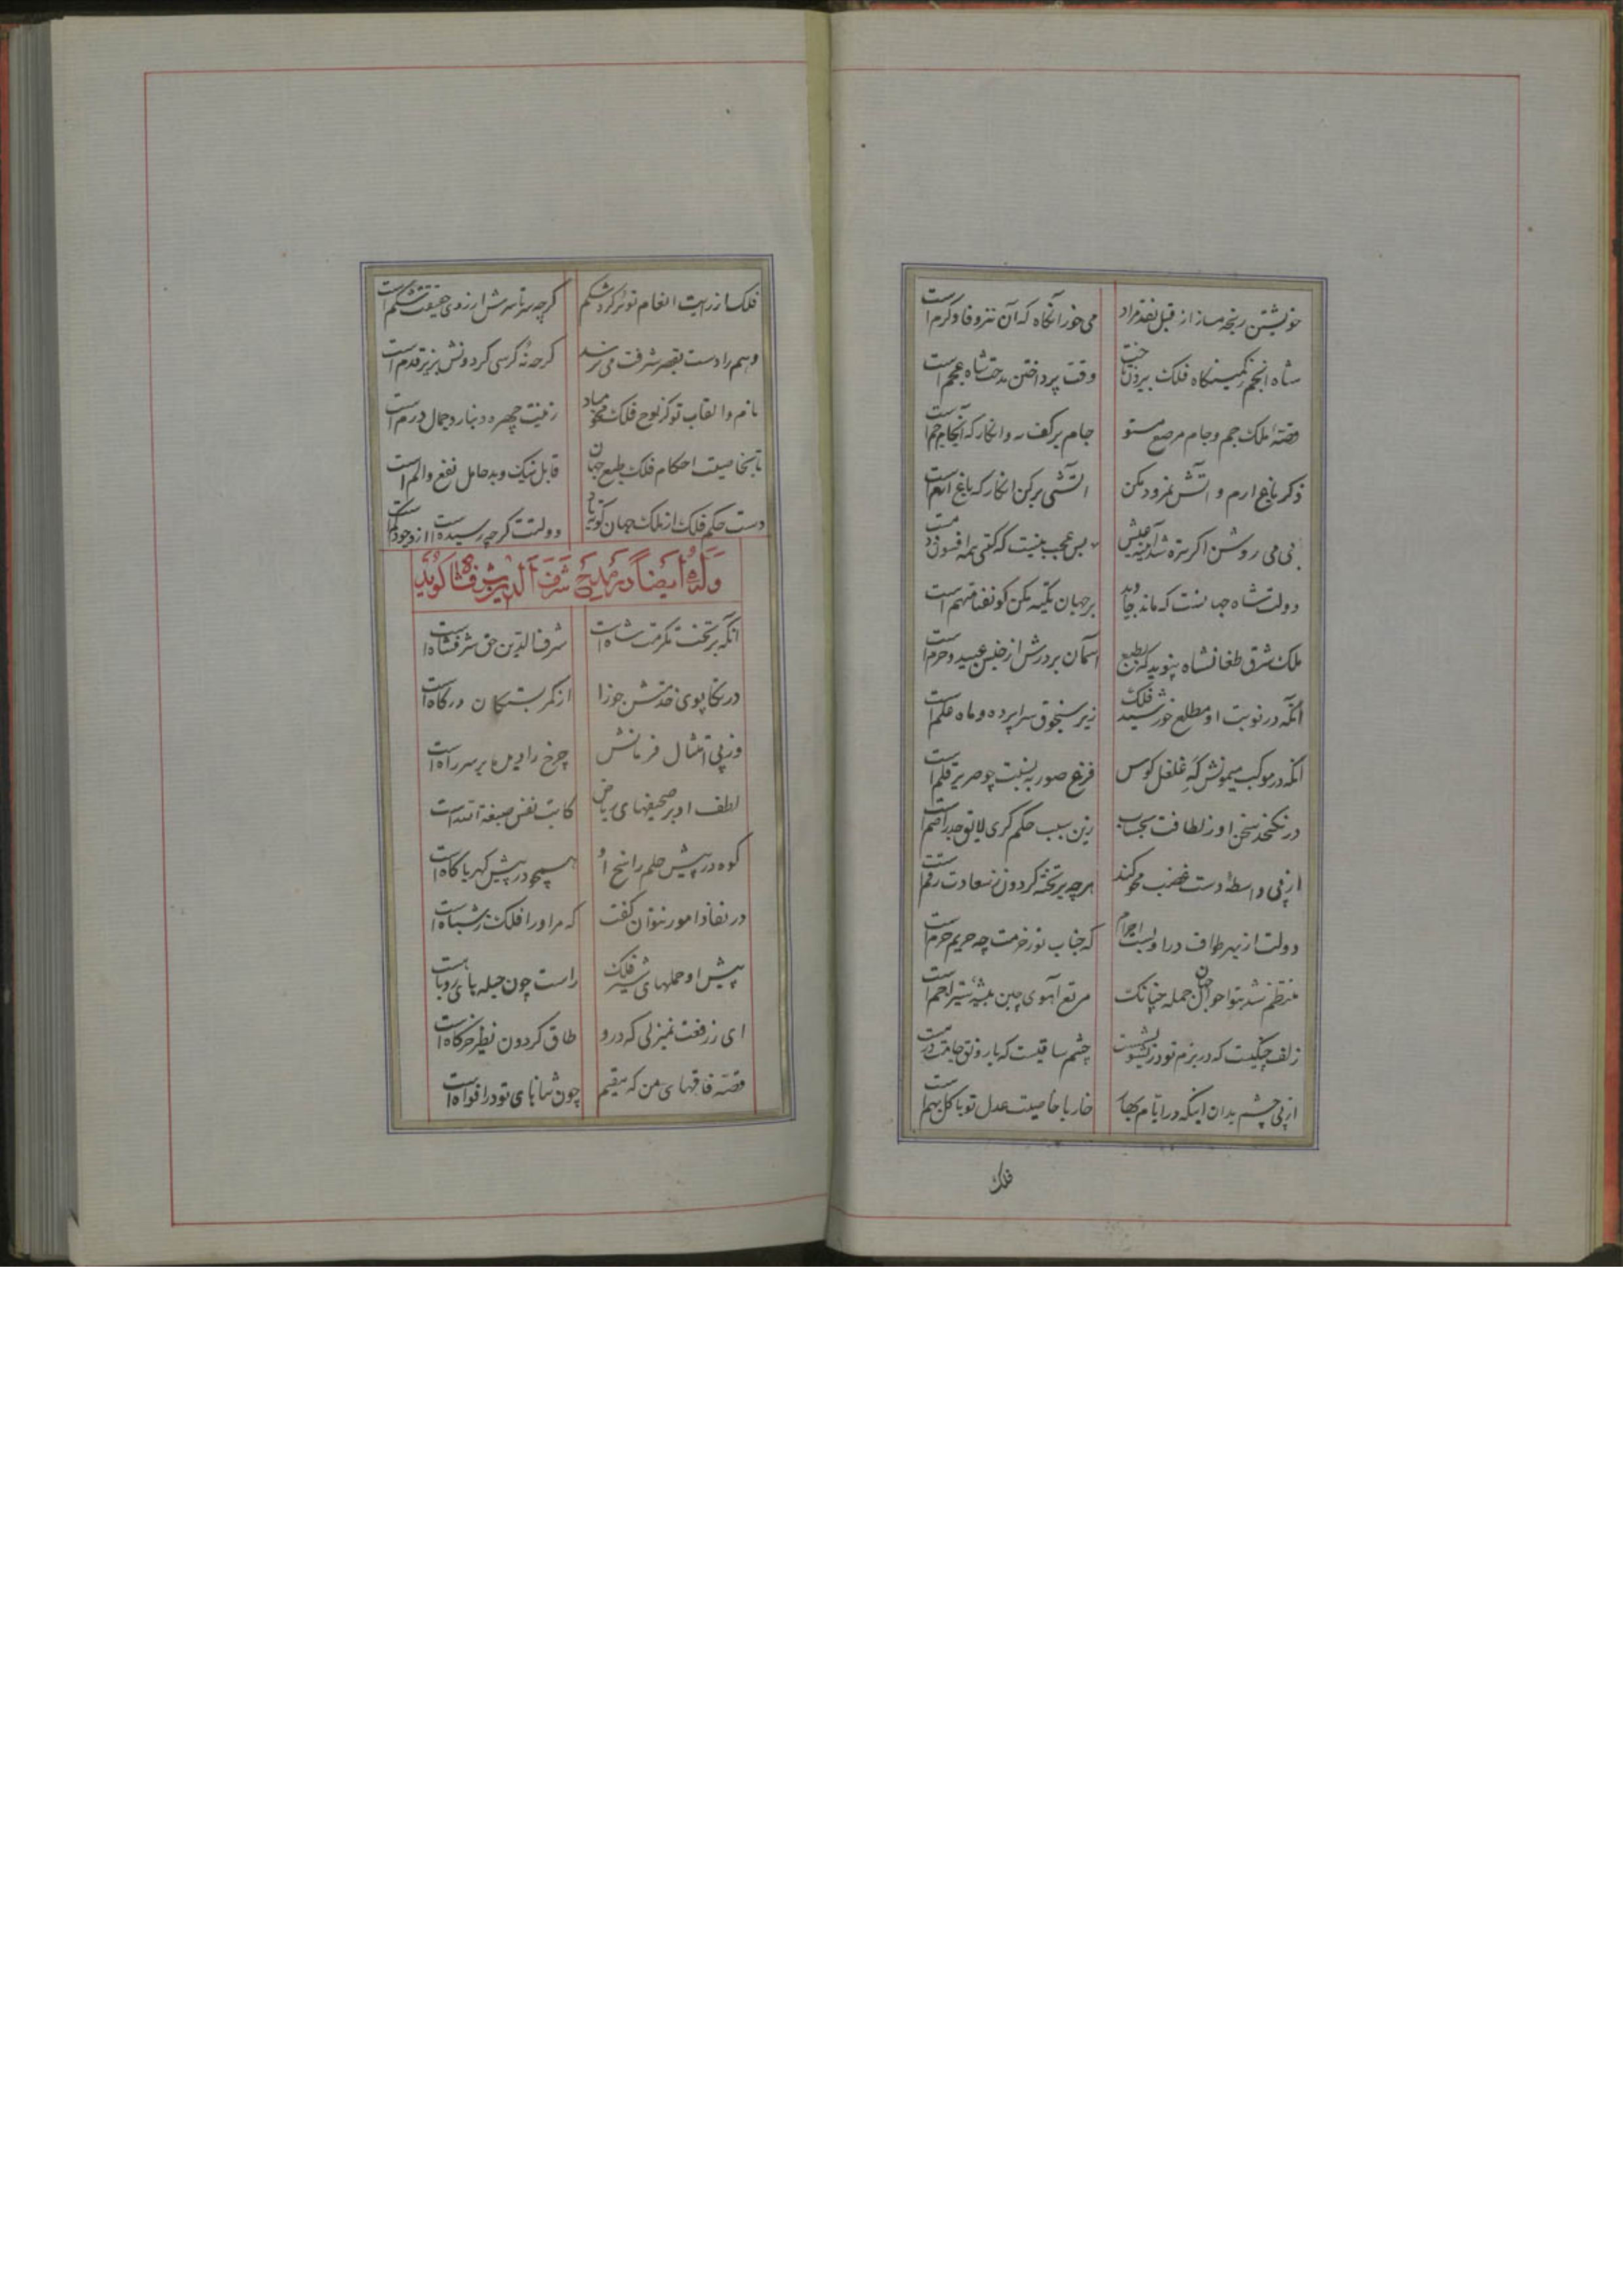 خویشتن رنجه مساز از قبل نقد مراد می خور آنگاه که آن نیز وفا و کرم است
شاه انجم ز کمینگاه فلک بیرون تاخت وقت پرداختن مدحت شاه عجم است
قصهٔ ملک جم و جام مرصع مشنو جام بر کف نه و انگار که آنجام جم است
ذکر باغ ارم و آتش نمرود مکن آتشی بر کن انگار که باغ ارم است
بی می روشن اگر تیره شد آیینه عیش بس عجب نیست که گیتی همه افسون و دمست
دولت شاه جهانست که ماند جاوید بر جهان تکیه مکن کو نفسا متهم است
ملک شرق طغانشاه بنوید که بطبع آسمان بر درش از خیل عبید و حرم است
آنکه در نوبت او مطلع خورشید فلک زیر سنجوق سراپرده و ماه علم است
آنکه در موکب میمونش که غلغل کوس فزع صور به نسبت چو صریر قلم است
در نگنجد سخن او ز لطافت بحساب زین سبب حکم کری لایق جدر اصم است
از پی واسطهٔ دست غضب محو کند هر چه بر تختهٔ گردون ز سعادت رقم است
دولت از بهر طواف در او بست احرام که جناب تو ز حرمت چه حریم حرم است
منتظم شد بتو احوال جهان جمله چنانک مرتع آهوی چین بیشهٔ شیر اجم است
زلف چنگیست که در بزم تو در تشویشست چشم ساقیست که با رونق جامت درمست
از پی چشم بدان اینکه در ایام بهار خار با خاصیت عدل تو با گل بهم است
فلک
فلک از زلت انعام تو پر کرد شکم گرچه سر تا سرش از روی حقیقت شکم است
وهم را دست بقصر شرفت می نرسد گرچه نه کرسی گردونش بزیر قدم است
نام و القاب تو کز لوح فلک محو مباد زینت چهره دینار و جمال درم است
تا بخاصیت احکام فلک طبع جهان قابل نیک و بد حامل نفع و الم است
دست حکم فلک از ملک جهان کوته باد دولتت گرچه رسیده است از وجود کم است
وله ایضاً در مدیح شرف الدین شرفشاه گوید
آنکه بر تخت مکرمت شاه است شرف الدین حق شرفشاه است
در تکاپوی خدمتش جوزا از کمر بستگان درگاه است
وز پی امتثال فرمانش چرخ را دیده بر سر راه است
لطف او بر صحیفهای ریاض کاتب نقش صبغة الله است
کوه در پیش حلم راسخ او همچو در پیش کهربا کاه است
در نفاذ امور نتوان گفت که مر او را فلک ز اشباه است
پیش او حملهای شیر فلک راست چون حیله بای روباهست
ای ز رفعت بمنزلی که درو طاق گردون نظیر خرگاه است
قصه فاقهای من که مقیم چون ثناهای تو در افواه است